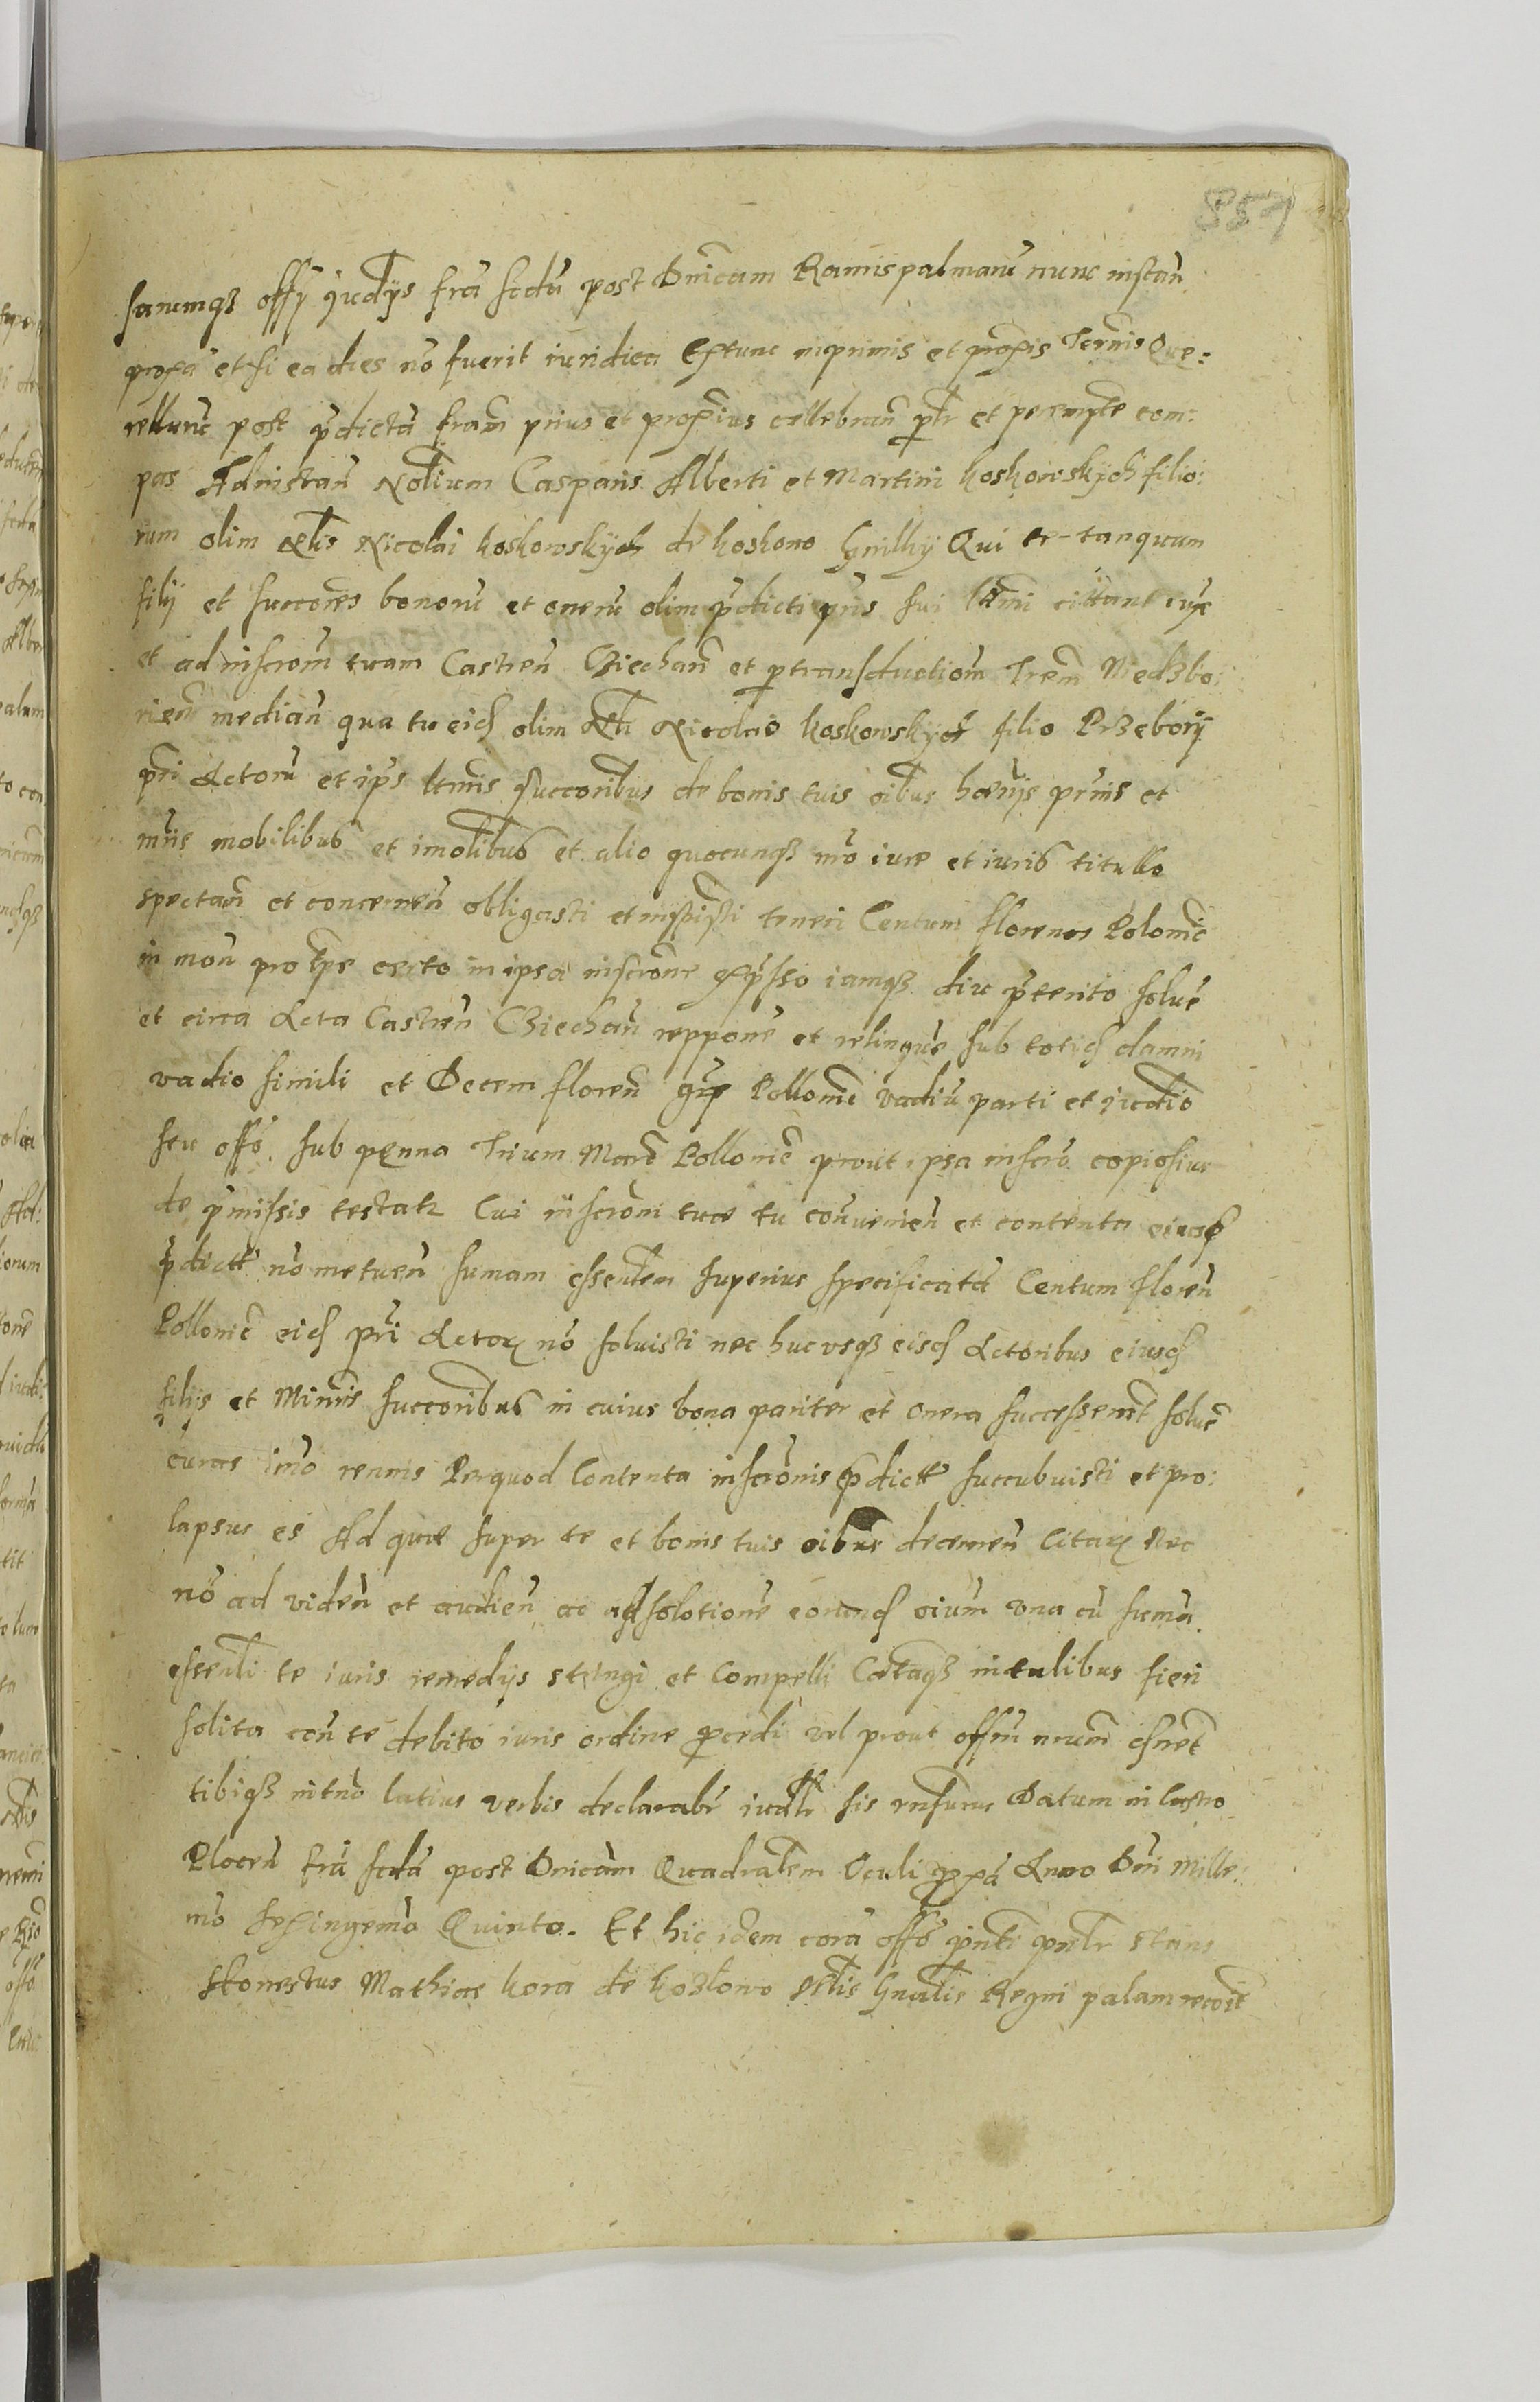 857
sanumqȝ offy judys fra scda post Dnicam Ramispalmaru nunc instan
proxa et si ea dies no fuerit iuridica Extunc inprimis et proxis Termis Que:
rellaru post pdicta fram prius et proxius cellebran ptr et perempte com:
pas Adinstan Nolium Casparis Alberti et Martini koskowskych filio:
rum olim Nlis Nicolai koskowskych de koskowo Gnilky Qui te tanquam
filij et succores bonoru et oneru olim pdicti pris sui ltmi cittant
et ad inscrom tuam Castren Ciechan et ptransductiom Trem Niedzbo:
rien median qua tu eid olim Nli Nicolao koskowskych filio Przeborij
pri Actoru et ips ltmis succoribus de bonis tuis oibus hereys prnis et
mnis mobilibus et imolibus et alio quocunqȝ mo iure et iuris titullo
spectan et concernen obligasti et inscpsti teneri Centum florenos Polonic
in mon pro tpre certo in ipsa inscrone expsso iamqȝ diu pterito solue
et circa Acta Castren Ciechan reppone et relinque sub totid damni
vadio simili et Decem floren Pollonic vadiu parti et judio
seu offo sub penna Trium Marc Pollonic prout ipsa inscro copiosius
de pmissis testatr Cui inscroni tuae tu conuenien et contenta eiusd
pdictt no metuen sumam essentlem superius specificata Centum floren
Pollonic eid pri Actor no soluisti nec hucusqȝ eisd Actoribus eiusd
filijs et Minris succoribus in cuius bona pariter et onera successerunt solue
curas imo rennis Perquod Contenta inscronis pdictt succubuisti et pro:
lapsus es Ad quae super te et bonis tuis oibus decernen Citaris Nec
no ad viden et audien ac adsolotione eorund oium una cu suma
essentli te iuris remedijs stringi et Compelli Cetaqȝ in talibus fieri
solita con te debito iuris ordine pcedi vel prout offm nrum
tibiqȝ in tno latius verbis declarabr iudlr sis rnsurus Datum in Castro
Plocen fra scda post Dnicam Quadralem Oculi pxa Anno Dni Mille:
mo sexingemo Quinto. Et hic idem cora offo pnti pnlr stans
Honestus Mathias kora de kozlowo Mlis Gnalis Regni palam recoit